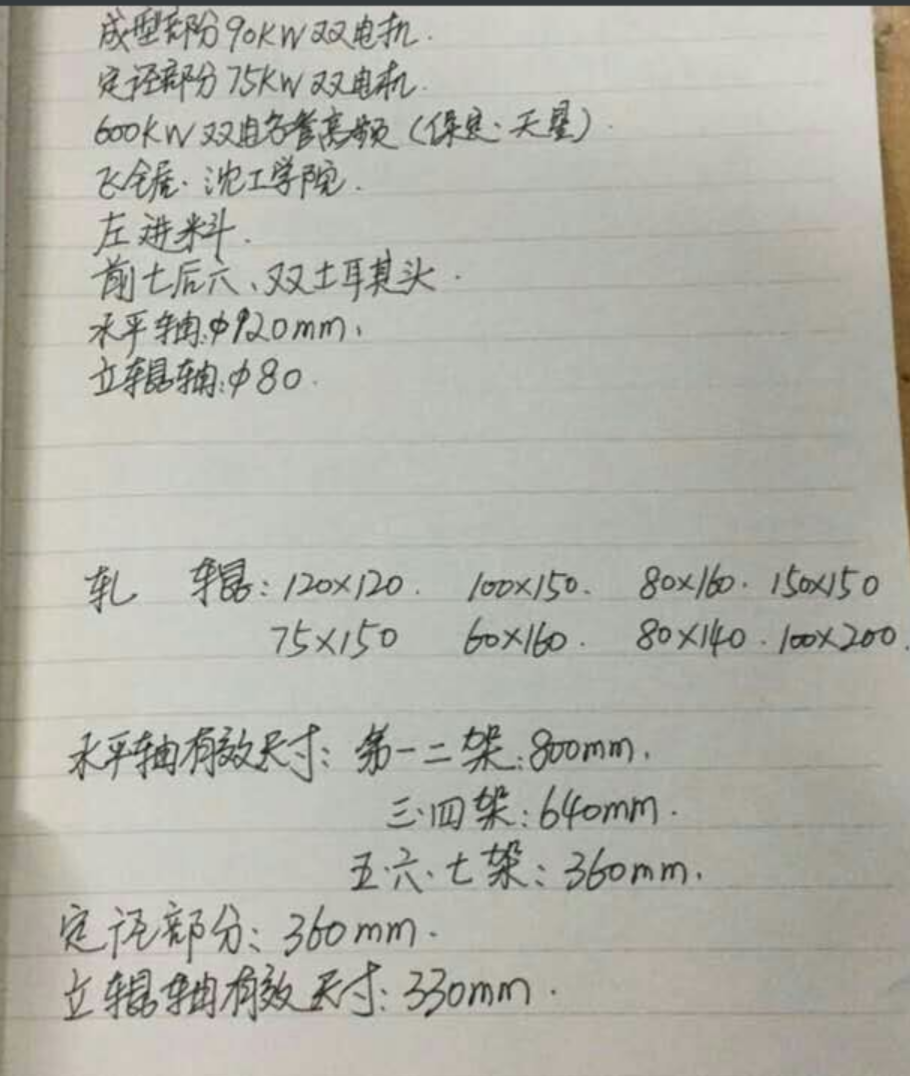 成型部分90KW双电机.
定径部分75KW双电机.
600KW双电容管高频(保定:天星).
飞锯:沈工学院.
左进料.
前七后六、双土耳其头.
水平轴:φ120mm.
立辊轴:φ80.
轧 辊:120×120. 100×150. 80×160. 150×150
75×150 60×160. 80×140. 100×200.
水平轴有效尺寸:第一二架:800mm.
三.四架:640mm.
五.六.七架:360mm.
定径部分:360mm.
立辊轴有效尺寸:330mm.